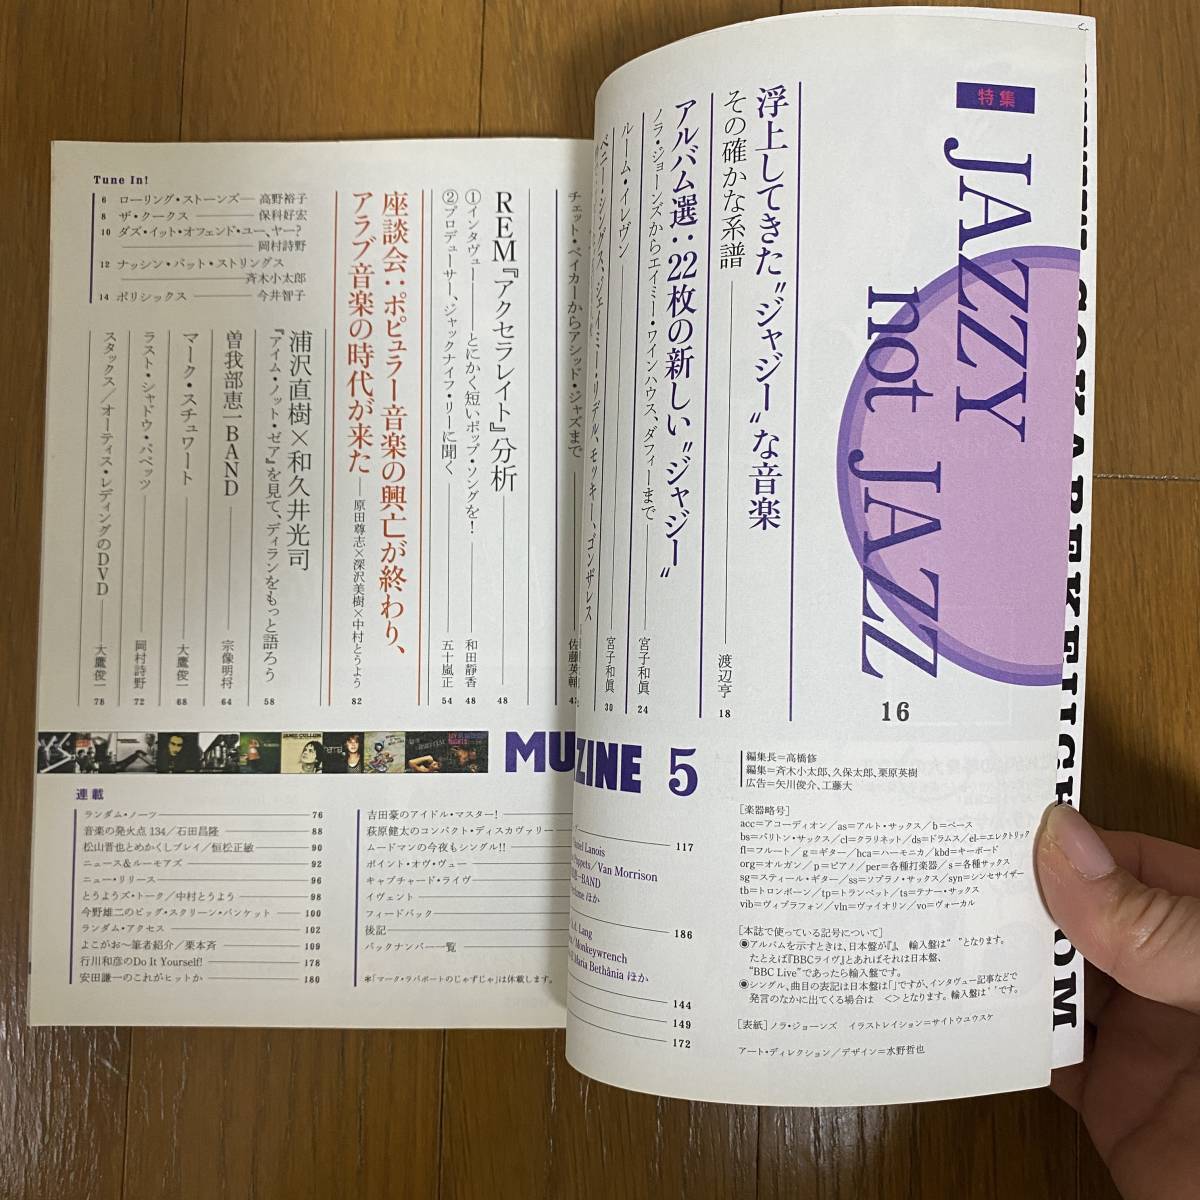 特集
JAZZY
not JAZZ
16
浮上してきた〝ジャジー〟な音楽
その確かな系譜
渡辺亨
18
アルバム選：22枚の新しい〝ジャジー〟
ノラ・ジョーンズからエイミー・ワインハウス、ダフィーまで
宮子和眞
24
ルーム・イレヴン
宮子和眞
30
ベニー・シングス、ジェイミー・リデル、モッキー、ゴンザレス
チェット・ベイカーからアシッド・ジャズまで
佐藤英輔
REM『アクセラレイト』分析
48
①インタヴュー――とにかく短いポップ・ソングを！
和田靜香
48
②プロデューサー、ジャックナイフ・リーに聞く
五十嵐正
54
座談会：ポピュラー音楽の興亡が終わり、
アラブ音楽の時代が来た
原田尊志×深沢美樹×中村とうよう
82
浦沢直樹×和久井光司
『アイム・ノット・ゼア』を見て、ディランをもっと語ろう
58
曽我部恵一BAND
宗像明将
64
マーク・スチュワート
大鷹俊一
68
ラスト・シャドウ・パペッツ
岡村詩野
72
スタックス／オーティス・レディングのDVD
大鷹俊一
78
Tune In!
6 ローリング・ストーンズ―高野裕子
8 ザ・クークス――保科好宏
10 ダズ・イット・オフェンド・ユー、ヤー?
――岡村詩野
12 ナッシン・バット・ストリングス
――斉木小太郎
14 ポリシックス――今井智子
JAMIE CULLUM
MU
ZINE 5
連載
ランダム・ノーツ 76
音楽の発火点 134／石田昌隆 88
松山晋也とめかくしプレイ／恒松正敏 90
ニュース&ルーモアズ 92
ニュー・リリース 96
とうようズ・トーク／中村とうよう 98
今野雄二のビッグ・スクリーン・バンケット 100
ランダム・アクセス 102
よこがお～筆者紹介／栗本斉 109
行川和彦のDo It Yourself! 178
安田謙一のこれがヒットか 180
吉田豪のアイドル・マスター!
萩原健太のコンパクト・ディスカヴァリー
ムードマンの今夜もシングル!!
ポイント・オヴ・ヴュー
キャプチャード・ライヴ
イヴェント
フィードバック
後記
バックナンバー一覧
＊「マーク・ラパポートのじゃずじゃ」は休載します。
117
Lanois
Puppets/Van Morrison
一BAND
ほか
186
Lang
/Monkeywrench
Maria Bethânia ほか
144
149
172
編集長＝高橋修
編集＝斉木小太郎、久保太郎、栗原英樹
広告＝矢川俊介、工藤大
［楽器略号］
acc＝アコーディオン／as＝アルト・サックス／b＝ベース
bs＝バリトン・サックス／cl＝クラリネット／ds＝ドラムス／el-＝エレクトリック
fl＝フルート／g＝ギター／hca＝ハーモニカ／kbd＝キーボード
org＝オルガン／p＝ピアノ／per＝各種打楽器／s＝各種サックス
sg＝スティール・ギター／ss＝ソプラノ・サックス／syn＝シンセサイザー
tb＝トロンボーン／tp＝トランペット／ts＝テナー・サックス
vib＝ヴィブラフォン／vln＝ヴァイオリン／vo＝ヴォーカル
［本誌で使っている記号について］
◉アルバムを示すときは、日本盤が『』、輸入盤は“ ”となります。
たとえば『BBCライヴ』とあればそれは日本盤、
“BBC Live”であったら輸入盤です。
◉シングル、曲目の表記は日本盤は「」ですが、インタヴュー記事などで
発言のなかに出てくる場合は ＜＞となります。輸入盤は‘ ’です。
［表紙］ノラ・ジョーンズ イラストレイション＝サイトウユウスケ
アート・ディレクション／デザイン＝水野哲也